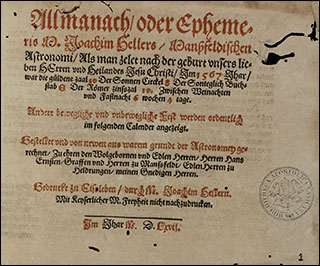 Allmanach / oder Epheme-
ris M. Joachim Hellers / Mansfeldischen
Astronomi / Als man zelet nach der geburt vnsers lie-
ben HErren vnd Heilandes Jesu Christi / Jm 1567 Jhar /
war die güldene zaal 10 Der Sonnen Circkel 8 Der Sonteglich Buch-
stab E Der Römer zinszal 10. Zwischen Weinachten
vnd Fastnacht 6 wochen 4 tage.
Andere bewegliche vnd vnbewegliche Fest werden ordentlich
im folgenden Calender angezeigt.
Gestellet vnd von newen aus warem grunde der Astronomey ge-
rechnet / Zu ehren den Wolgebornen vnd Edlen Herren / Herren Hans
Ernsten / Graffen vnd Herren zu Mansfeldt / Edlen Herren zu
Heldrungen / meinen Gnedigen Herren.
Gedruckt zu Eisleben / durch M. Joachim Hellern.
Mit Keyserlicher M. Freyheit nicht nachzudrucken.
Jm Jhar M. D. Lxvii.
1